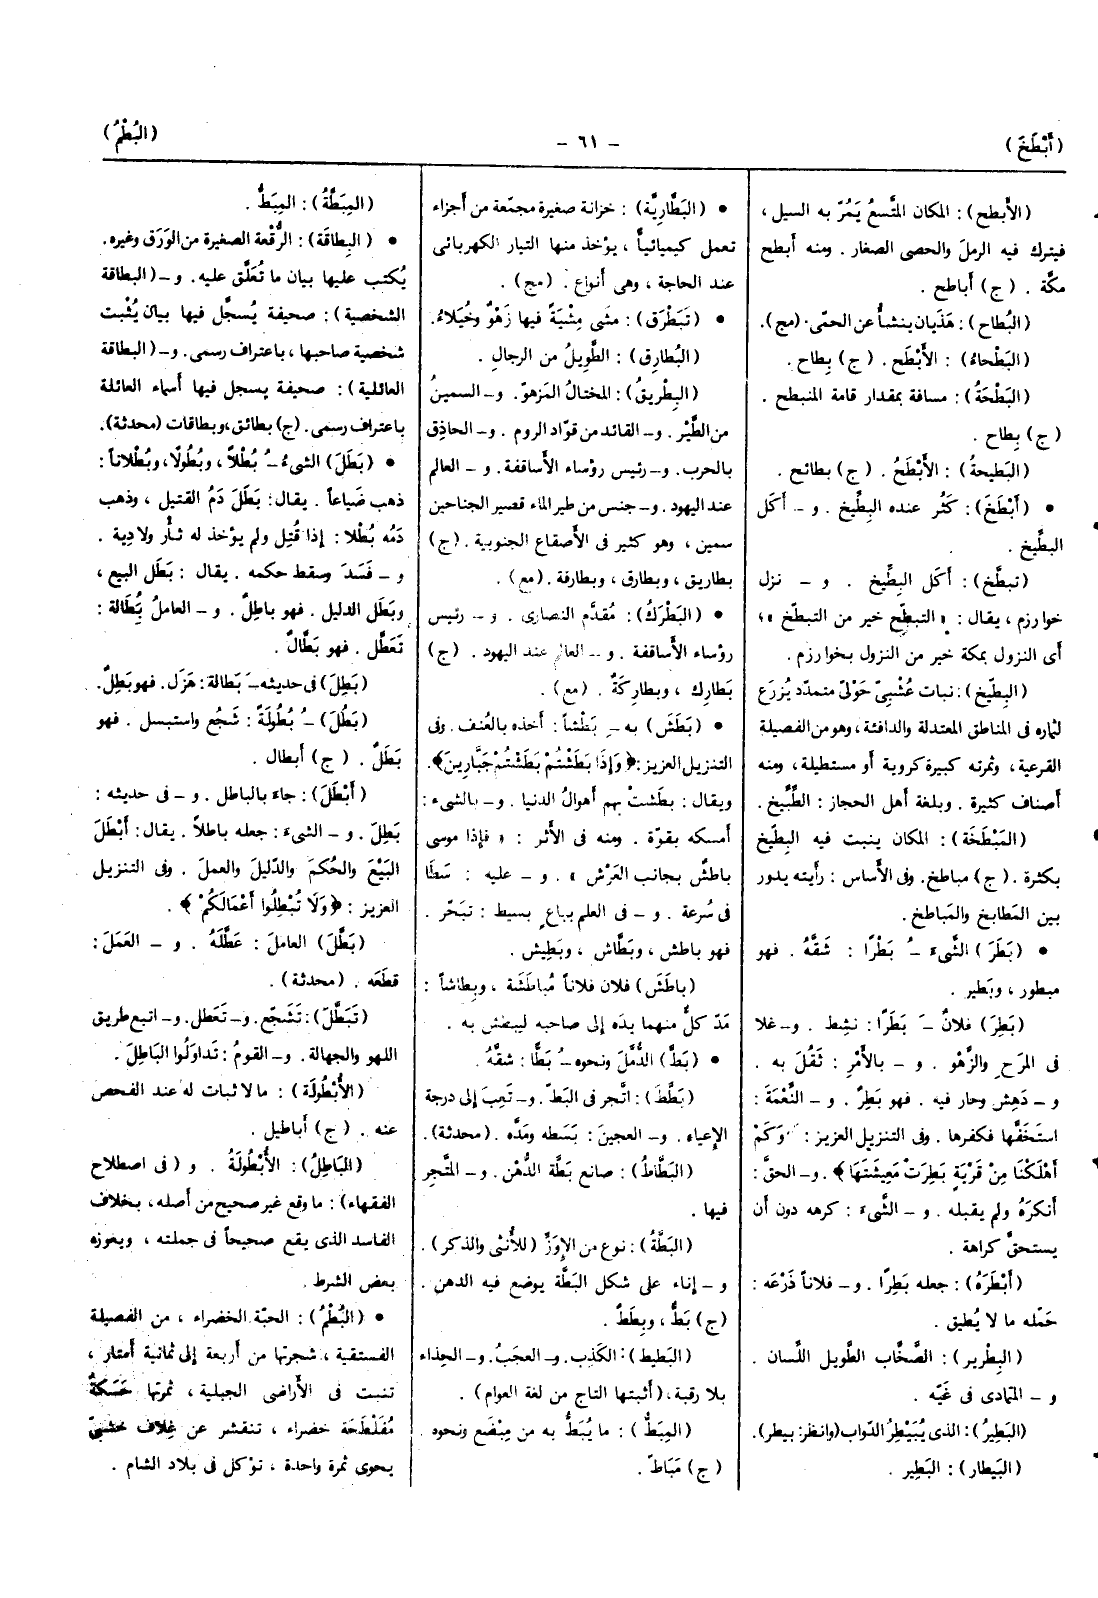 (أَبْطَخَ)
— ٦١ —
(البُطْمُ)
(الأَبطح): المكان المتَّسعُ يَمُرّ به السيل ،
فيترك فيه الرملَ والحصى الصغار . ومنه أبطح
مكَّة . (ج) أباطح .
(البُطاح): هَذَيان ينشأُ عن الحمَّى . (مج).
(البَطْحاءُ): الأَبْطَح . (ج) بِطاح .
(البَطْحَةُ): مسافة بمقدار قامة المنبطح .
(ج) بِطاح .
(البَطيحةُ): الأَبْطَحُ . (ج) بطائح .
• (أَبْطَخَ): كَثُر عنده البِطِّيخ . و – أَكَل
البطِّيخ .
(تبطَّخ): أَكَل البِطِّيخ . و – نزل
خوارزم ، يقال : « التبطّح خير من التبطّخ » ؛
أى النزول بمكة خير من النزول بخوارزم .
(البِطِّيخ): نبات عُشْبىّ حَوْلىّ متمدّد يُزرَع
لثماره فى المناطق المعتدلة والدافئة ، وهو من الفصيلة
القرعية ، وثمرته كبيرة كروية أو مستطيلة ، ومنه
أصناف كثيرة . وبلغة أهل الحجاز : الطِّبِّيخ .
(المَبْطَخَة): المكان ينبت فيه البِطِّيخ
بكثرة . (ج) مباطخ. وفى الأَساس : رأيته يدور
بين المَطابخ والمَباطخ .
• (بَطَرَ) الشَّىءَ ـُ بَطْرًا : شَقَّهُ . فهو
مبطور ، وبَطير .
(بَطِرَ) فلانٌ ـَ بَطَرًا : نشِط . و – غلا
فى المرَح والزَّهْو . و – بالأَمْر : ثَقُلَ به .
و – دَهِش وحار فيه . فهو بَطِرٌ . و – النِّعْمَةَ :
استَخَفَّها فكفرها . وفى التنزيل العزيز : ﴿وَكَمْ
أَهْلَكْنَا مِنْ قَرْيَةٍ بَطِرَتْ مَعِيشَتَهَا﴾ . و – الحقَّ :
أنكرَهُ ولم يقبله . و – الشَّىءَ : كرهه دون أن
يستحقَّ كراهة .
(أَبْطَرَهُ): جعله بَطِرًا . و – فلاناً ذَرْعَه :
حَمّله ما لا يُطيق .
(البِطْرير): الصَّخَّاب الطَّويل اللِّسان .
و – المتمادى فى غَيّه .
(البَطِيرُ): الذى يُبَيْطِرُ الدَّواب (وانظر: بيطر).
(البَيطار): البَطِير .
• (البَطَّارِيَّة): خزانة صغيرة مجمّعة من أَجزاء
تعمل كيميائيًّا ، يؤخذ منها التيار الكهربائى
عند الحاجة ، وهى أنواع . (مج) .
• (تَبَطْرَق): مشى مِشْيَةً فيها زَهْوٌ وخُيَلاءُ.
(البُطارِق): الطَّوِيلُ من الرجالِ .
(البِطْريقُ): المختالُ المَزهوّ. و – السمينُ
من الطَّيْر . و – القائد من قوّاد الروم . و – الحاذِق
بالحرب. و – رئيس رؤساء الأَساقفة. و – العالم
عند اليهود. و – جنس من طير الماء قصير الجناحين
سمين ، وهو كثير فى الأَصقاع الجنوبية . (ج)
بطاريق ، وبطارق ، وبطارقة . (مع) .
• (البَطْرَكُ): مُقدَّم النصارى . و – رئيس
رؤساء الأَساقفة . و – العالم عند اليهود . (ج)
بَطارِك ، وبطارِكَةٌ . (مع) .
• (بَطَشَ) به ـِ بَطْشاً : أخذه بالعُنف . وفى
التنزيل العزيز : ﴿وَإِذَا بَطَشْتُمْ بَطَشْتُمْ جَبَّارِينَ﴾.
ويقال : بطَشتْ بهم أهوالُ الدنيا . و – بالشىء :
أمسكه بقوّة . ومنه فى الأَثر : « فإذا موسى
باطشٌ بجانب العَرْش » . و – عليه : سَطَا
فى سُرعة . و – فى العلم بباع بسيط : تبحّر .
فهو باطش ، وبَطَّاش ، وبَطِيش .
(باطَشَ) فلان فلاناً مُباطَشة ، وبِطاشاً :
مَدّ كلٌّ منهما يدَه إلى صاحبه ليبطش به .
• (بَطَّ) الدُّمَّلَ ونحوه ـُ بَطًّا : شقَّهُ .
(بَطَّطَ): اتَّجر فى البَطّ . و – تَعِبَ إلى درجة
الإعياء . و – العجينَ : بَسَطه ومَدَّه . (محدثة).
(البَطَّاطُ): صانع بَطَّة الدُّهْن. و – المتَّجِر
فيها .
(البَطَّةُ): نوع من الإِوَزّ (للأُنثى والذكر) .
و – إناء على شكل البَطَّة يوضع فيه الدهن .
(ج) بَطٌّ ، وبِطَطٌ .
(البَطيط): الكَذِب . و – العجَبُ . و – الحِذاء
بلا رقبة ، (أثبتها التاج من لغة العوام) .
(المِبَطُّ): ما يُبَطُّ به من مِبْضَع ونحوه .
(ج) مَباطّ .
(المِبَطَّةُ): المِبَطُّ .
• (البِطاقَة): الرُّقْعة الصغيرة من الوَرَق وغيره.
يُكتب عليها بيان ما تُعَلَّق عليه. و – (البطاقة
الشخصية): صحيفة يُسجَّل فيها بيان يُثْبت
شخصية صاحبها ، باعتراف رسمى. و – (البطاقة
العائلية): صحيفة يسجل فيها أسماء العائلة
باعتراف رسمى. (ج) بطائق، وبطاقات (محدثة).
• (بَطَلَ) الشىءُ ـُ بُطْلاً ، وبُطُولًا، وبُطْلاناً :
ذهب ضَياعاً . يقال: بَطَلَ دَمُ القتيل ، وذهب
دَمُه بُطْلا : إذا قُتِل ولم يؤخذ له ثأرٌ ولا دِية .
و – فَسَدَ وسقط حكمه . يقال : بَطَل البيع ،
وبَطَل الدليل . فهو باطِلٌ . و – العاملُ بِطَالة :
تَعَطَّل . فهو بَطَّالٌ .
(بَطِلَ) فى حديثه ـَ بَطالة : هَزَل . فهو بَطِلٌ.
(بَطُلَ) ـُ بُطُولَةً : شَجُع واستبسل . فهو
بَطَلٌ . (ج) أبطال .
(أَبْطَلَ): جاءَ بالباطل . و – فى حديثه :
بَطِلَ . و – الشىءَ : جعله باطلاً . يقال : أَبْطَلَ
البَيْعَ والحُكمَ والدَّليلَ والعملَ . وفى التنزيل
العزيز : ﴿وَلَا تُبْطِلُوا أَعْمَالَكُمْ﴾ .
(بَطَّلَ) العاملَ : عَطَّلَهُ . و – العَمَلَ :
قطَعَه . (محدثة) .
(تَبَطَّلَ): تَشَجّع. و – تَعَطل. و – اتبع طريق
اللهو والجهالة . و – القومُ : تَداوَلُوا البَاطِلَ .
(الأُبْطُولَة): ما لا ثبات له عند الفحص
عنه . (ج) أباطيل .
(البَاطِلُ): الأُبْطُولَةُ . و (فى اصطلاح
الفقهاء): ما وقع غير صحيح من أصله، بخلاف
الفاسد الذى يقع صحيحاً فى جملته ، ويعوزه
بعض الشرط .
• (البُطْمُ): الحبَّة الخضراء ، من الفصيلة
الفستقية ، شجرتها من أربعة إلى ثمانية أمتار ،
تنبت فى الأَراضى الجبلية ، ثمرتها حَسَكَةٌ
مُفَلْطَحة خضراء ، تنقشر عن غِلاف خشبىّ
يحوى ثمرة واحدة ، تؤكل فى بلاد الشام .